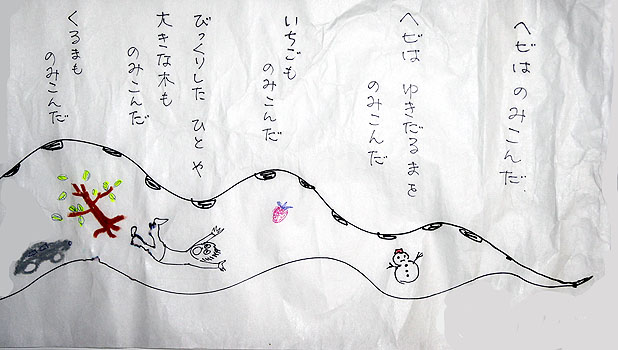 ヘビは のみこんだ、
ヘビは ゆきだるまを
のみこんだ
いちごも
のみこんだ
びっくりした ひとや
大きな木も
のみこんだ
くるまも
のみこんだ